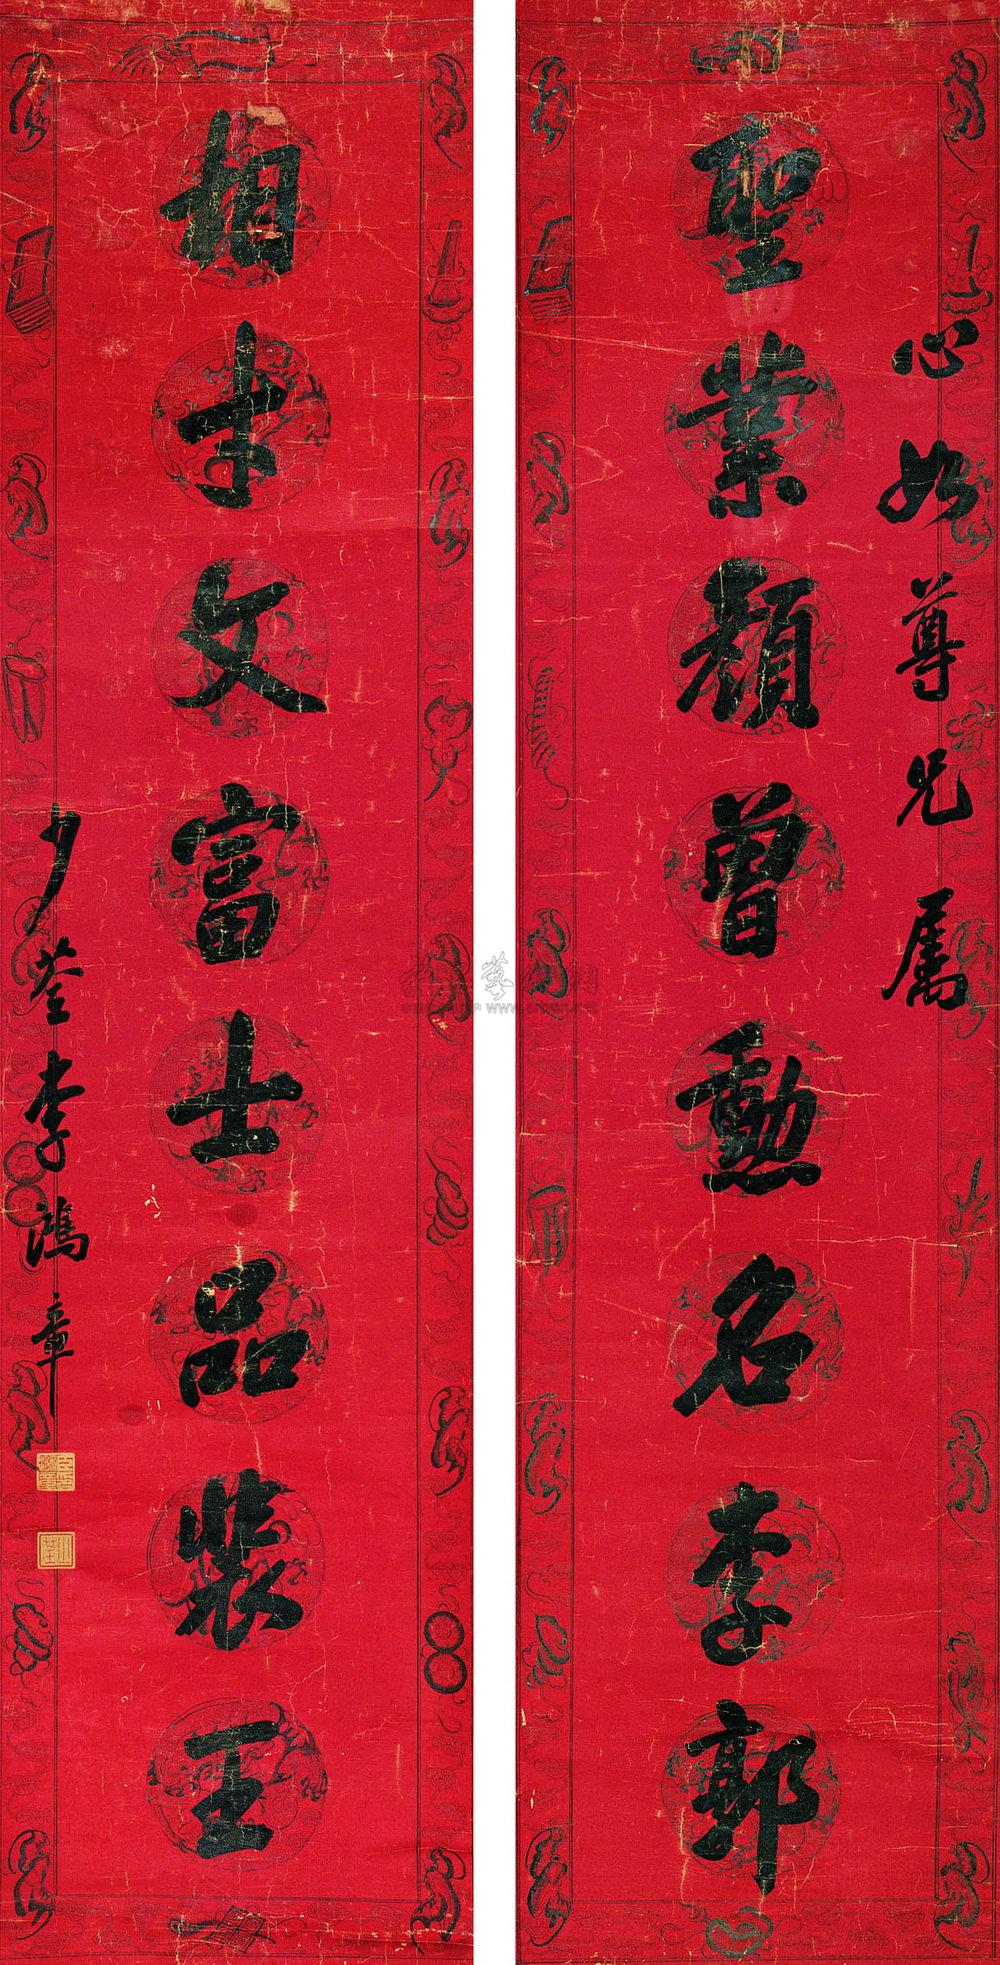 心如尊兄屬
聖業顏曾勳名李郭
相才文富士品裴王
少荃李鴻章